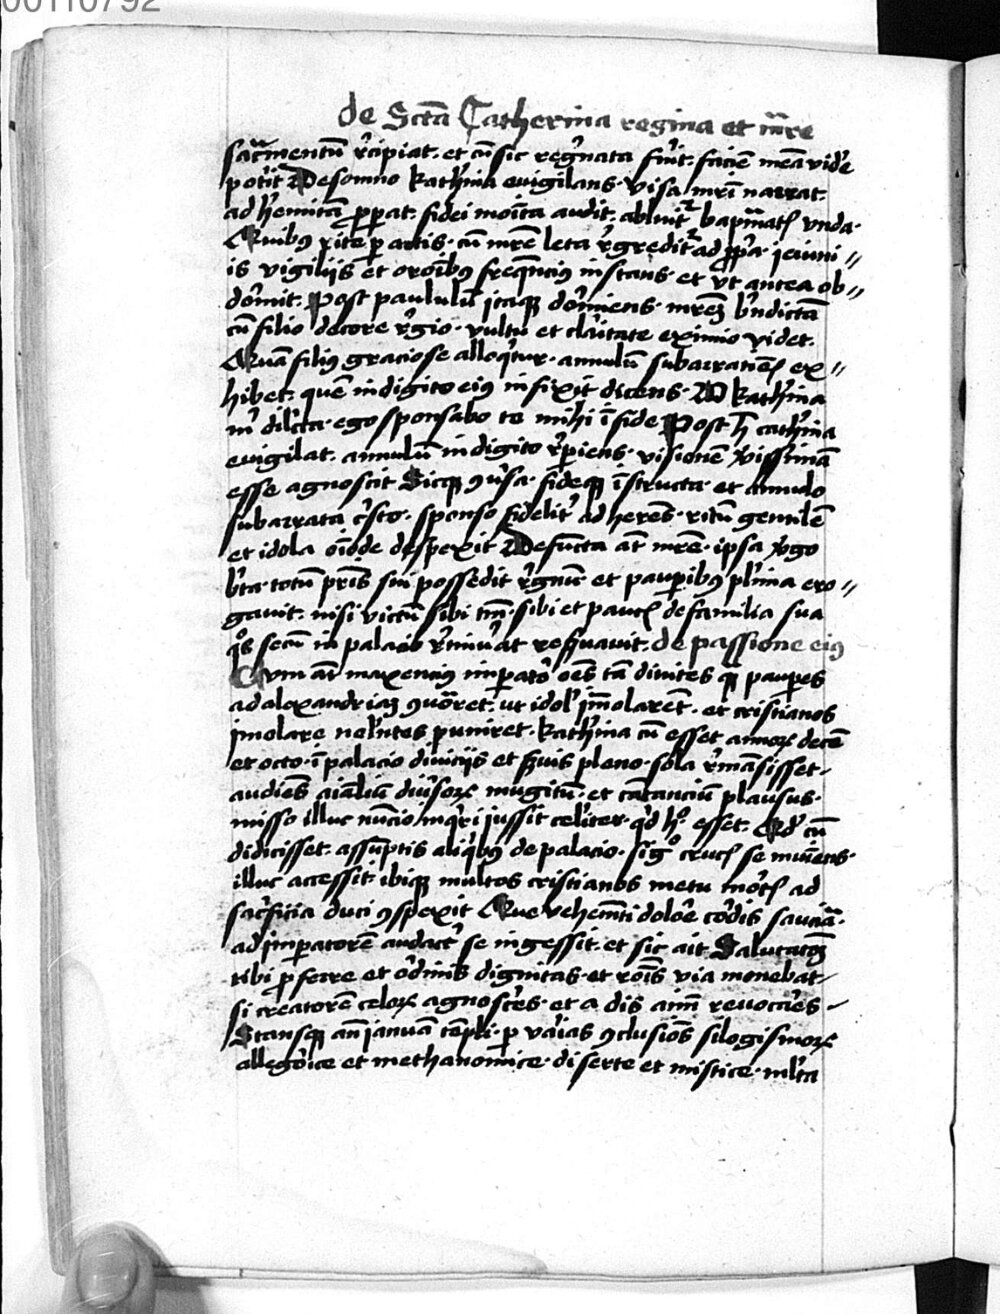 00110792
de Sctā Catherina regina et m̄re
sacr̄mentū r̄cipiat · et cū sic reg̓nata fu̓it · faciē meā vid̓e
pot̓it De somno kath̓ina euigilans · visa mr̄i narrat ·
ad h̓emitā pp̓at · fidei moīta audit · abluit᷑ bap̄mat᷒ vnda ·
Quibꝰ rite ꝑactis · cū mr̄e leta r̓gredit᷑ ad ꝓp̓a · ieiuni //
is vigilijs et orōibꝰ freqn̄ciꝰ instans · et vt antea ob //
dormit · Post paululū itaqꝫ dormiens · mr̄eꝫ bn̄dictā
cū filio decore r̓gio · vultu et cla̓itate eximio videt ·
Quā filiꝰ graciose alloqͥtur · annulū subarracōis ex //
hibet · quē in digito eiꝰ infixit dicens · O kath̓ina
m̓ dilc̄ta · ego sponsabo te mihi ī fide Post h̄ cath̓ina
euigilat · annulū in digito r̓piens · visionē v̓issimā
esse agnoscit Sicqꝫ ꝯu̓sa · fideqꝫ īstructa · et annulo
subarrata cr̓sto · sponso fidelit̓ adherēs · ritū gentilē
et idola oīode despexit Defūcta at̄ mr̄e · ipsa v̓go
bt̄a · totū pr̄is sui possedit r̓gnū et pauꝑibꝰ pl̓ima ero //
gauit · nisi victū sibi tm̄ · sibi et pauc᷒ de familia sua
qͦs secū in palacio r̓miu̓at res̓uauit · de passione eiꝰ
Cum at̄ maxenciꝰ imꝑator oēs tā diuites qꝫ pauꝑes
ad alexandriaꝫ ꝯuo̓ret · ut idol᷒ īmolarēt · et cristianos
imolare noln̄tes puniret · kath̓ina cū esset annoꝝ decē
et octo · ī palacio diuicijs et s̓uis pleno · sola r̓māsisset ·
audiēs aīaliū diu̓soꝝ mugitū · et cātanciū plausus ·
misso illuc nūcio inqͥri iussit celiter · qͥd hͦ esset · Qd̓ cū
didicisset · assūptis aliqͥbꝰ de palacio · sigͦ cruc᷒ se muīens ·
illuc accessit · ibiqꝫ multos cristianos metu mort᷒ ad
sac̓ficia duci ꝯspexit Que vehemēti dolore cordis sauciā ·
ad imꝑatorē audact̓ se ingessit · et sic ait Salutacōꝫ
tibi ꝓferre et ordinis dignitas · et rōis via monebat
si creatorē celoꝝ agnosc̓es · et a dis aīm reuoca̓es
Stansqꝫ an̄ ianuā tēpli · ꝑ va̓ias ꝯclusiōs silogismoꝝ
allegorice et methanomice · diserte et mistice · ml̓ta